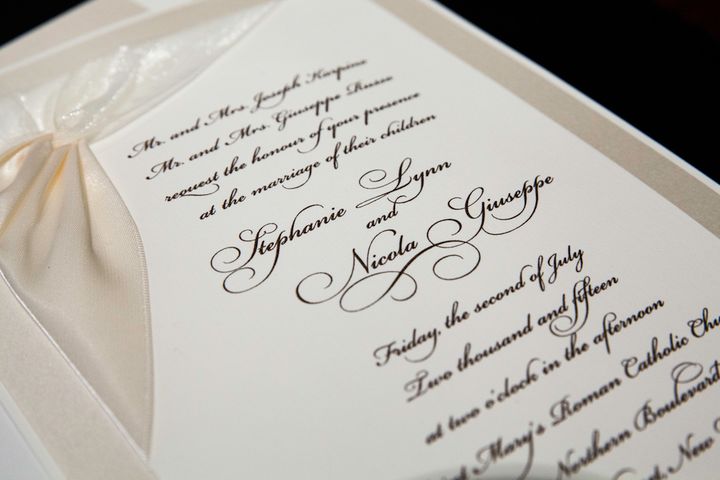 Mr. and Mrs. Joseph Karpine
Mr. and Mrs. Giuseppe Russo
request the honour of your presence
at the marriage of their children
Stephanie Lynn
and
Nicola Giuseppe
Friday, the second of July
Two thousand and fifteen
at two o'clock in the afternoon
Mary's Roman Catholic
Northern Boulevard
New